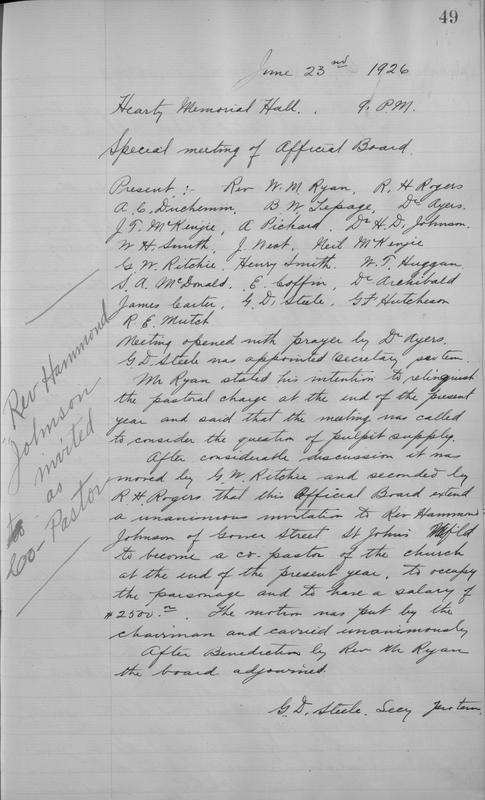 49
June 23rd 1926
Hearty Memorial Hall. . 9. P.M.
Special meeting of Official Board.
Present :- Rev W. M Ryan, R. H Rogers
A. C. Duchemin. B. W. Lepage, Dr Ayers.
J. T. McKenzie, A Pichard. Dr H. D. Johnson.
W H. Smith, J. West, Neil McKinzie
G. W. Ritchie, Henry Smith. W. T. Huggan.
S. A. McDonald. E. Coffin, Dr Archibald
James Carter, G. D. Steele, G F Hutcheson
R. E. Mutch
Meeting opened with prayer by Dr Ayers.
G D. Steele was appointed secretary tem.
Mr Ryan stated his intention to relinquish
the pastoral charge at the end of the present
year and said that the meeting was called
to consider the question of pulpit supply.
After considerable discussion it was
moved by G. W. Ritchie and seconded by
R. H. Rogers that this Official Board extend
a unanimous invitation to Rev Hammond
Johnson of Gower Street St John's Nfld
to become a co-pastor of the church
at the end of the present year, to occupy
the parsonage and to have a salary of
$2500.00. The motion was put by the
chairman and carried unanimously
After Benediction by Rev Mr Ryan
the board adjourned.
G. D. Steele. Secy pro tem.
Rev Hammond
Johnson
invited
as
to
Co-Pastor